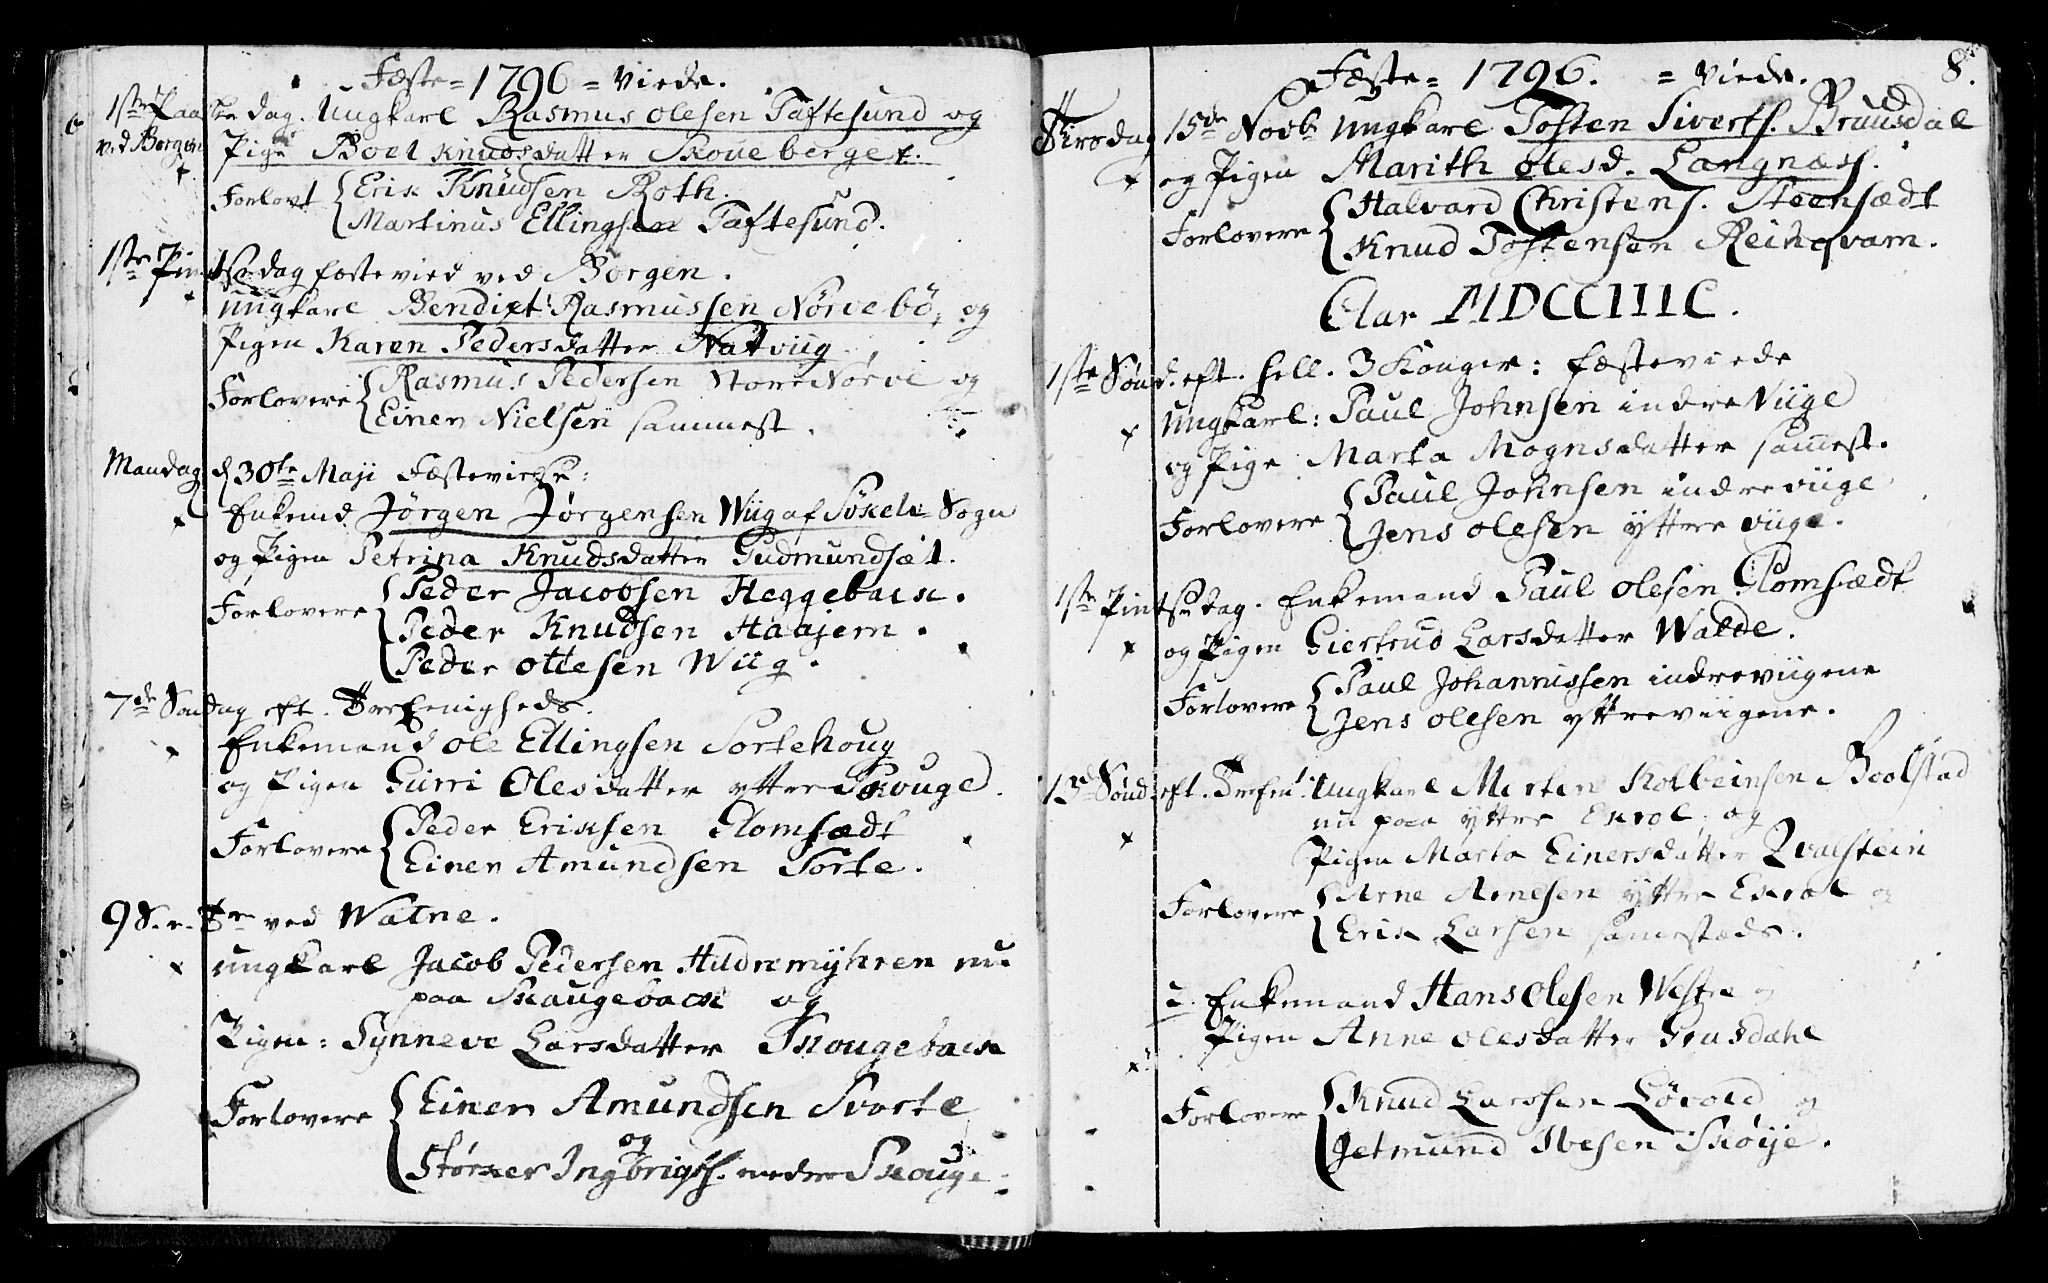 Fæste = 1796 = viede.
1ste Paaske dag. Ungkarl Rasmus olesen Taftesund og
ved Borgen Pige Boel Knudsdatter Skoueberget.
Forlovt Erik Knudsen Roth.
Martinus Ellingsen Taftesund.
1ste Pintsedag fæstevied ved Borgen.
Ungkarl Bendixt Rasmussen Nörvebö, og
Pigen Karen Pedersdatter Natviig
Forlovere Rasmus Pedersen StoreNörve og
Einer Nielsen sammest.
Mandag d 30te Maji Fæstevielse:
Enkemd Jörgen Jörgensen Wiig af Sökelv Sogn
og Pigen Petrina Knudsdatter Gudmundsæt.
Forlovere Peder Jacobsen Heggeback.
Peder Knudsen Haajem.
Peder ottesen Wiig.
7de Søndag eft. Treeenigheds.
Enkemand ole Ellingsen Sortehoug
og Pigen Gurri Olesdatter yttre Skouge.
Forlovere Peder Eriksen Flomsædt
Einer Amundsen Sorte.
9 S. e. Tr ved Watne.
ungkarl Jacob Pedersen Hildremyhren nu
paa Skaugeback og
Pigen: Synneve Larsdatter Skougeback
Forlovere Einer Amundsen Svorte
og
Störker Ingbrigts. nedre Skouge.
Fæste = 1796. = viede. 8.
Tirsdag 15de Novb Ungkarl Tosten Siverts. Bruusdal
og Pigen Marith olesd. Langnæss.
Forlovere Halvard Christens. Steensædt
Knud Tostensen Reinqvam.
Clar MDCCIIIC.
1ste Sönd. eft. hell. 3 Konger: fæsteviede
Ungkarl: Paul Johnsen indre Viige
og Pige Marta Mognsdatter samest.
Forlovere Paul Johnsen indre viige
Jens olesen yttre viige.
1ste Pintsedag. Enkemand Paul olesen Flomsædt
og Pigen Giertrud Larsdatter Walde.
Forlovere Paul Johannissen indreviigene
Jens olesen yttreviigene.
13d Sönd. eft. Trefni: Ungkarl Morten Kolbeinsen Boolstad
nu paa yttre Exrol, og
Pigen Marta Einersdatter Qvalstein
Forlovere Arne Arnesen yttre Exrol og
Erik Larsen samesteds.
2. Enkemand Hans Olesen Westre og
Pigen Anne olesdatter Grusdahl
Forlovere Knud Larssen Lövold og
Jetmund Ivesen Sköije.